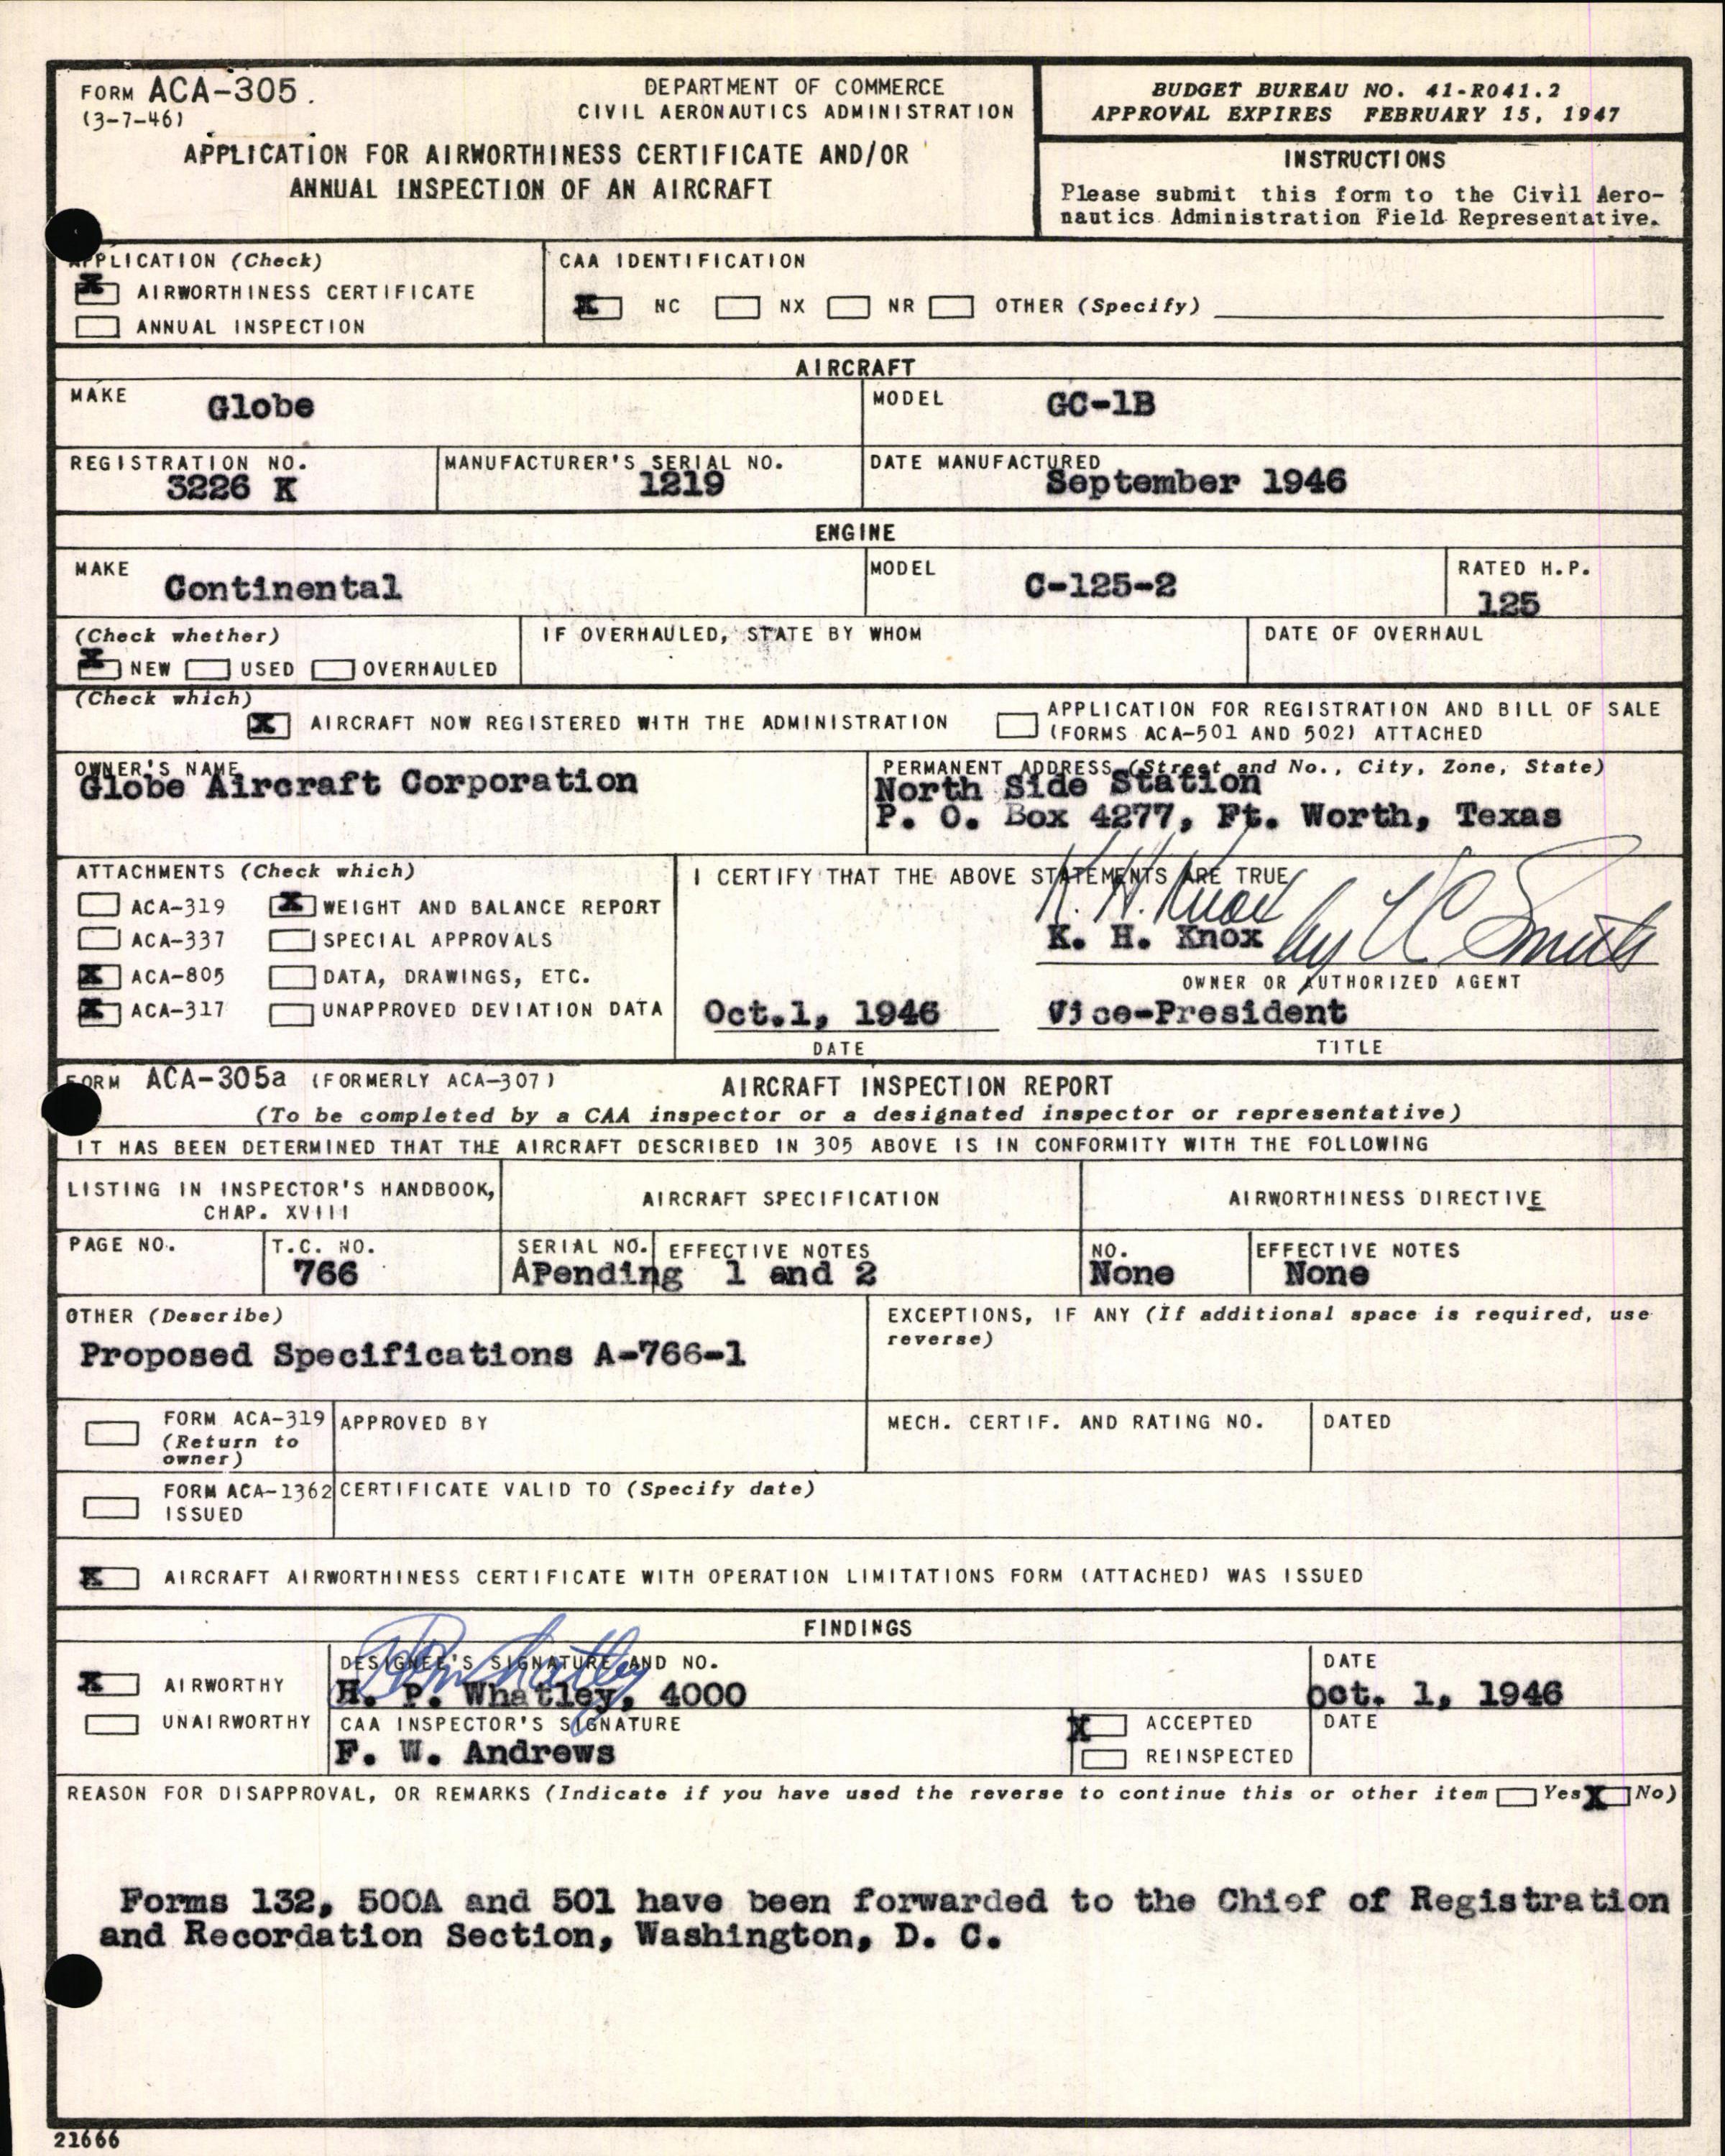 FORM ACA-305
(3-7-46)
DEPARTMENT OF COMMERCE
CIVIL AERONAUTICS ADMINISTRATION
APPLICATION FOR AIRWORTHINESS CERTIFICATE AND/OR
ANNUAL INSPECTION OF AN AIRCRAFT
BUDGET BUREAU NO. 41-R041.2
APPROVAL EXPIRES FEBRUARY 15, 1947
INSTRUCTIONS
Please submit this form to the Civil Aero-
nautics Administration Field Representative.
APPLICATION (Check)
X AIRWORTHINESS CERTIFICATE
ANNUAL INSPECTION
CAA IDENTIFICATION
X NC NX NR OTHER (Specify)
AIRCRAFT
MAKE Globe
MODEL GC-1B
REGISTRATION NO.
3226 K
MANUFACTURER'S SERIAL NO.
1219
DATE MANUFACTURED
September 1946
ENGINE
MAKE Continental
MODEL C-125-2
RATED H.P.
125
(Check whether)
X NEW USED OVERHAULED
IF OVERHAULED, STATE BY WHOM
DATE OF OVERHAUL
(Check which)
X AIRCRAFT NOW REGISTERED WITH THE ADMINISTRATION
APPLICATION FOR REGISTRATION AND BILL OF SALE
(FORMS ACA-501 AND 502) ATTACHED
OWNER'S NAME
Globe Aircraft Corporation
PERMANENT ADDRESS (Street and No., City, Zone, State)
North Side Station
P. O. Box 4277, Ft. Worth, Texas
ATTACHMENTS (Check which)
ACA-319 X WEIGHT AND BALANCE REPORT
ACA-337 SPECIAL APPROVALS
X ACA-805 DATA, DRAWINGS, ETC.
X ACA-317 UNAPPROVED DEVIATION DATA
I CERTIFY THAT THE ABOVE STATEMENTS ARE TRUE
K. H. Knox by L C Smith
K. H. Knox
OWNER OR AUTHORIZED AGENT
Oct.1, 1946 Vice-President
DATE TITLE
FORM ACA-305a (FORMERLY ACA-307) AIRCRAFT INSPECTION REPORT
(To be completed by a CAA inspector or a designated inspector or representative)
IT HAS BEEN DETERMINED THAT THE AIRCRAFT DESCRIBED IN 305 ABOVE IS IN CONFORMITY WITH THE FOLLOWING
LISTING IN INSPECTOR'S HANDBOOK,
CHAP. XVIII
AIRCRAFT SPECIFICATION
AIRWORTHINESS DIRECTIVE
PAGE NO.
T.C. NO.
766
SERIAL NO. EFFECTIVE NOTES
APending 1 and 2
NO.
None
EFFECTIVE NOTES
None
OTHER (Describe)
Proposed Specifications A-766-1
EXCEPTIONS, IF ANY (If additional space is required, use
reverse)
FORM ACA-319
(Return to
owner)
APPROVED BY
MECH. CERTIF. AND RATING NO.
DATED
FORM ACA-1362
ISSUED
CERTIFICATE VALID TO (Specify date)
X AIRCRAFT AIRWORTHINESS CERTIFICATE WITH OPERATION LIMITATIONS FORM (ATTACHED) WAS ISSUED
FINDINGS
X AIRWORTHY
UNAIRWORTHY
DESIGNEE'S SIGNATURE AND NO.
H. P. Whatley, 4000
DATE
Oct. 1, 1946
CAA INSPECTOR'S SIGNATURE
F. W. Andrews
X ACCEPTED
REINSPECTED
DATE
REASON FOR DISAPPROVAL, OR REMARKS (Indicate if you have used the reverse to continue this or other item Yes X No)
Forms 132, 500A and 501 have been forwarded to the Chief of Registration
and Recordation Section, Washington, D. C.
21666